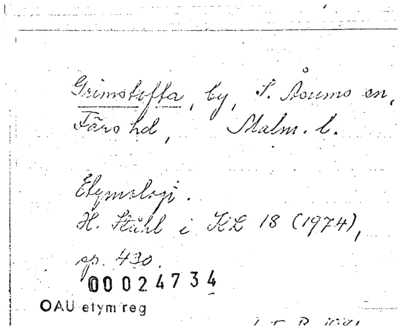 Grimstofta, by, S. Åsums sn,
Färs hd, Malm. l.
Etymologi.
H. Ståhl i KL 18 (1974),
sp. 430.
00024734
OAU etym reg